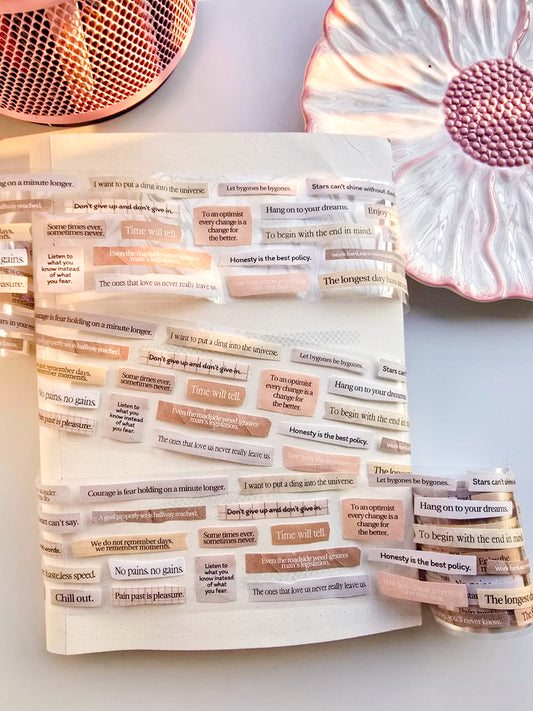 ng on a minute longer.
I want to put a ding into the universe.
Let bygones be bygones.
Stars can't shine without
halfway reached.
Don't give up and don't give in.
To an optimist
every change is a
change for
the better.
Hang on to your dreams.
Enjoy
Some times ever,
sometimes never.
Time will tell.
To begin with the end in mind.
gains.
Listen to
what you
know instead
of what
you fear.
Even the roadside weed ignores
man's legislation.
Honesty is the best policy.
easure.
The ones that love us never really leave us.
The longest day has
Courage is fear holding on a minute longer.
I want to put a ding into the universe.
Let bygones be bygones.
Stars can't
properly set is halfway reached.
Don't give up and don't give in.
remember days.
remember moments.
Some times ever,
sometimes never.
Time will tell.
To an optimist
every change is a
change for
the better.
Hang on to your dreams.
No pains, no gains.
Listen to
what you
know instead
of what
you fear.
Even the roadside weed ignores
man's legislation.
To begin with the end in
Pain past is pleasure.
The ones that love us never really leave us.
Honesty is the best policy.
The longest
Courage is fear holding on a minute longer.
I want to put a ding into the universe.
Let bygones be bygones.
Stars can't shine
can't say.
A goal properly set is halfway reached.
Don't give up and don't give in.
To an optimist
every change is a
change for
the better.
Hang on to your dreams.
words.
We do not remember days,
we remember moments.
Some times ever,
sometimes never.
Time will tell.
To begin with the end in mind.
haste, less speed.
No pains, no gains.
Listen to
what you
know instead
of what
you fear.
Even the roadside weed ignores
man's legislation.
Honesty is the best policy.
Chill out.
Pain past is pleasure.
The ones that love us never really leave us.
The longest day
you'll never know.